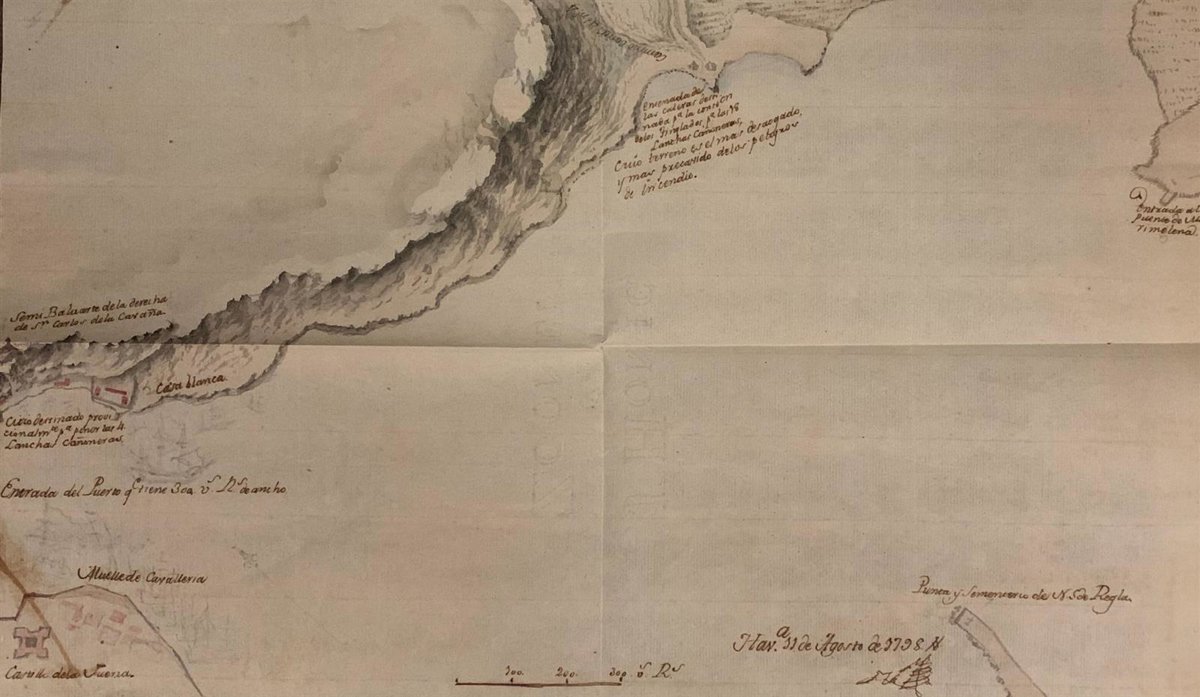 Ensenada de
las caleras desti
nada pª la constrn
de los Tinglados, pª las 18
Lanchas Cañoneras,
Cuio terreno es el mas desaogado,
y mas precavido de los peligros
de Incendio.
Entrada
Puente de
rimelena
Semi Baluarte de la derecha
de Sn Carlos de la Cavaña.
Casa blanca.
Citio destinado provi
cionalmte pª poner las 4
Lanchas Cañoneras,
Entrada del Puerto q tiene 300. vs Rs de ancho
Muelle de Cavalleria
Castillo de la Fuerza.
Punta y Sementerio de N.S de Regla.
Havª 11 de Agosto de 1798
100. 200. 300 vs Rs